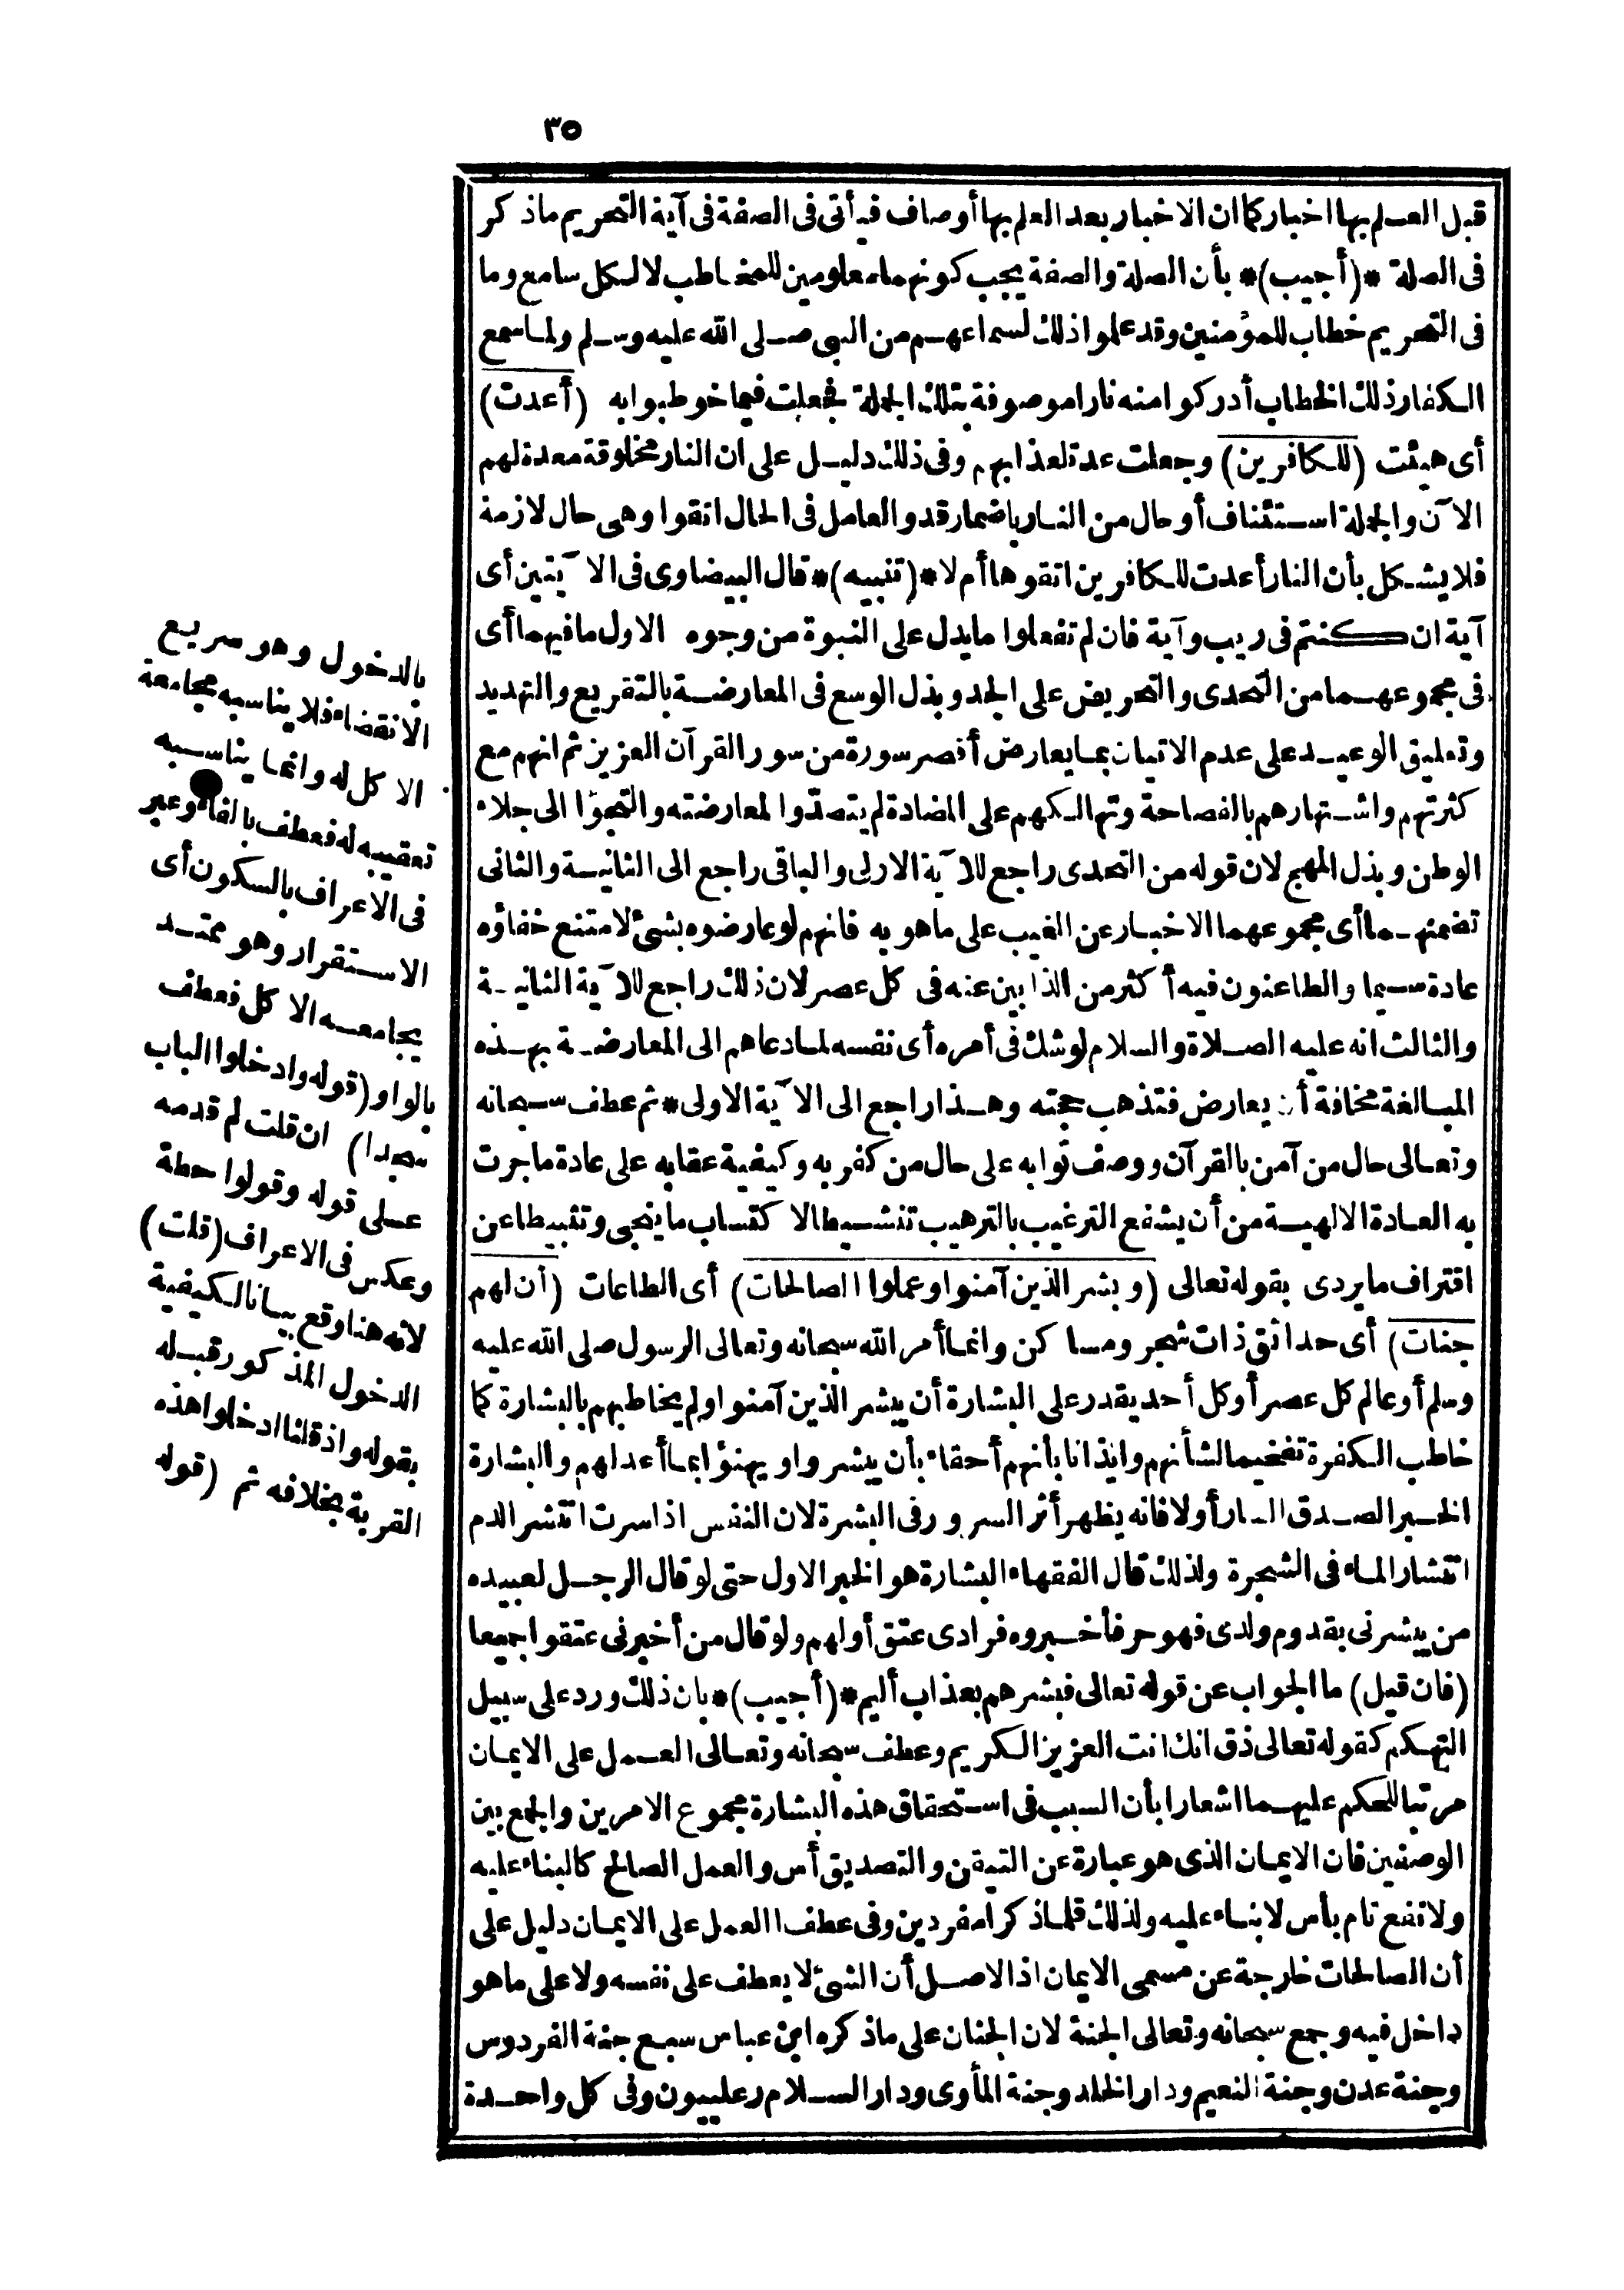 ٣٥
قبل العلم بها اخبار كما ان الاخبار بعد العلم بها أوصاف فيأتى فى الصفة فى آية التحريم ما ذكر
فى الصلة *(أجيب)* بأن الصلة والصفة يجب كونهما معلومين للمخاطب لا لكل سامع وما
فى التحريم خطاب للمؤمنين وقد علموا ذلك لسماعهم من النبى صلى الله عليه وسلم ولما سمع
الكفار ذلك الخطاب أدركوا منه نارا موصوفة بتلك الجملة فجعلت فيما خوطبوا به (أعدت)
أى هيئت (للكافرين) وجعلت عدة لعذابهم وفى ذلك دليل على ان النار مخلوقة معدة لهم
الآن والجملة استئناف أو حال من النار باضمار قد والعامل فى الحال اتقوا وهى حال لازمة
فلا يشكل بأن النار أعدت للكافرين اتقوها أم لا *(تنبيه)* قال البيضاوى فى الآيتين أى
آية ان كنتم فى ريب وآية فان لم تفعلوا ما يدل على النبوة من وجوه الاول ما فيهما أى
فى مجموعهما من التحدى والتحريض على الجد وبذل الوسع فى المعارضة بالتقريع والتهديد
وتعليق الوعيد على عدم الاتيان بما يعارض أقصر سورة من سور القرآن العزيز ثم انهم مع
كثرتهم واشتهارهم بالفصاحة وتهالكهم على المضادة لم يتصدّوا لمعارضته والتجؤا الى جلاء
الوطن وبذل المهج لان قوله من التحدى راجع للآية الاولى والباقى راجع الى الثانية والثانى
تضمنهما أى مجموعهما الاخبار عن الغيب على ما هو به فانهم لو عارضوه بشئ لامتنع خفاؤه
عادة سيما والطاعنون فيه أكثر من الذابين عنه فى كل عصر لان ذلك راجع للآية الثانية
والثالث انه عليه الصلاة والسلام لو شك فى أمره أى نفسه لما دعاهم الى المعارضة بهذه
المبالغة مخافة أن يعارض فتذهب حجته وهذا راجع الى الآية الاولى * ثم عطف سبحانه
وتعالى حال من آمن بالقرآن ووصف ثوابه على حال من كفر به وكيفية عقابه على عادة ما جرت
به العادة الالهية من أن يشفع الترغيب بالترهيب تنشيطا لاكتساب ما ينجى وتثبيطا عن
اقتراف ما يردى بقوله تعالى (وبشر الذين آمنوا وعملوا الصالحات) أى الطاعات (أن لهم
جنات) أى حدائق ذات شجر ومساكن وانما أمر الله سبحانه وتعالى الرسول صلى الله عليه
وسلم أو عالم كل عصر أو كل أحد يقدر على البشارة أن يبشر الذين آمنوا ولم يخاطبهم بالبشارة كما
خاطب الكفرة تفخيما لشأنهم وايذانا بأنهم أحقاء بأن يبشروا ويهنؤا بما أعد لهم والبشارة
الخبر الصدق السار أولا فانه يظهر أثر السرور فى البشرة لان النفس اذا سرت انتشر الدم
انتشار الماء فى الشجرة ولذلك قال الفقهاء البشارة هو الخبر الاول حتى لو قال الرجل لعبيده
من يبشرنى بقدوم ولدى فهو حر فأخبروه فرادى عتق أولهم ولو قال من أخبرنى عتقوا جميعا
(فان قيل) ما الجواب عن قوله تعالى فبشرهم بعذاب أليم *(أجيب)* بان ذلك ورد على سبيل
التهكم كقوله تعالى ذق انك انت العزيز الكريم وعطف سبحانه وتعالى العمل على الايمان
مرتبا للحكم عليهما اشعارا بأن السبب فى استحقاق هذه البشارة مجموع الامرين والجمع بين
الوصفين فان الايمان الذى هو عبارة عن التيقن والتصديق أس والعمل الصالح كالبناء عليه
ولا نفع تام بأس لا بناء عليه ولذلك قلما ذكرا مفردين وفى عطف العمل على الايمان دليل على
أن الصالحات خارجة عن مسمى الايمان اذ الاصل أن الشئ لا يعطف على نفسه ولا على ما هو
داخل فيه وجمع سبحانه وتعالى الجنة لان الجنان على ما ذكره ابن عباس سبع جنة الفردوس
وجنة عدن وجنة النعيم ودار الخلد وجنة المأوى ودار السلام وعليون وفى كل واحدة
بالدخول وهو سريع
الانقضاء فلا يناسبه مجامعة
الاكل له وانما يناسبه
تعقيبه له فعطف بالفاء وعبر
فى الاعراف بالسكون أى
الاستقرار وهو ممتد
يجامعه الاكل فعطف
بالواو (قوله وادخلوا الباب
سجدا) ان قلت لم قدمه
على قوله وقولوا حطة
وعكس فى الاعراف (قلت)
لانه هنا وقع بيانا لكيفية
الدخول المذكور قبله
بقوله واذ قلنا ادخلوا هذه
القرية بخلافه ثم (قوله